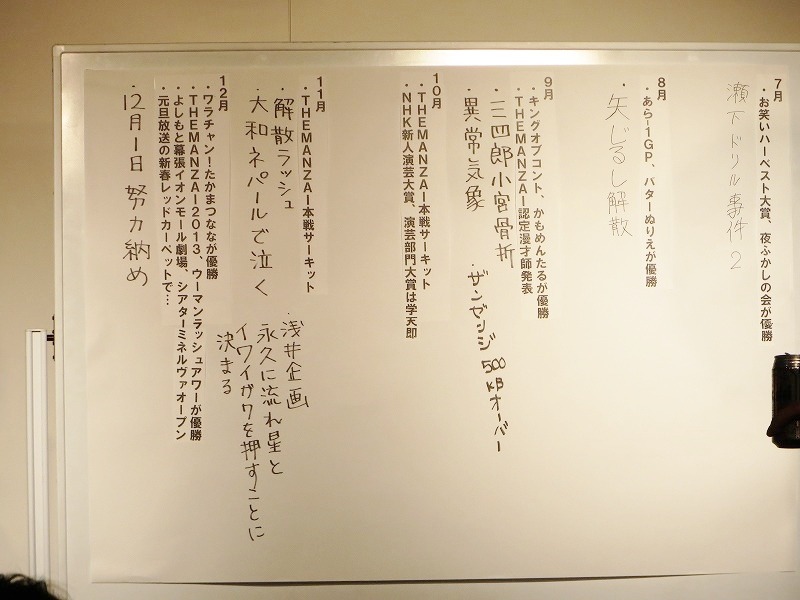 7月
・お笑いハーベスト大賞、夜ふかしの会が優勝
瀬下ドリル事件2
8月
・あらー1GP、バターぬりえが優勝
・矢じるし解散
9月
・キングオブコント、かもめんたるが優勝
・THEMANZAI認定漫才師発表
・三四郎小宮骨折
・異常気象
・ザンゼンジ500KBオーバー
10月
・THEMANZAI本戦サーキット
・NHK新人演芸大賞、演芸部門大賞は学天即
11月
・THEMANZAI本戦サーキット
・解散ラッシュ
・大和ネパールで泣く
・浅井企画
永久に流れ星と
イワイガワを押すことに
決まる
12月
・ワラチャン!たかまつななが優勝
・THEMANZAI2013、ウーマンラッシュアワーが優勝
・よしもと幕張イオンモール劇場、シアターミネルヴァオープン
・元旦放送の新春レッドカーペットで…
・12月1日 努力納め